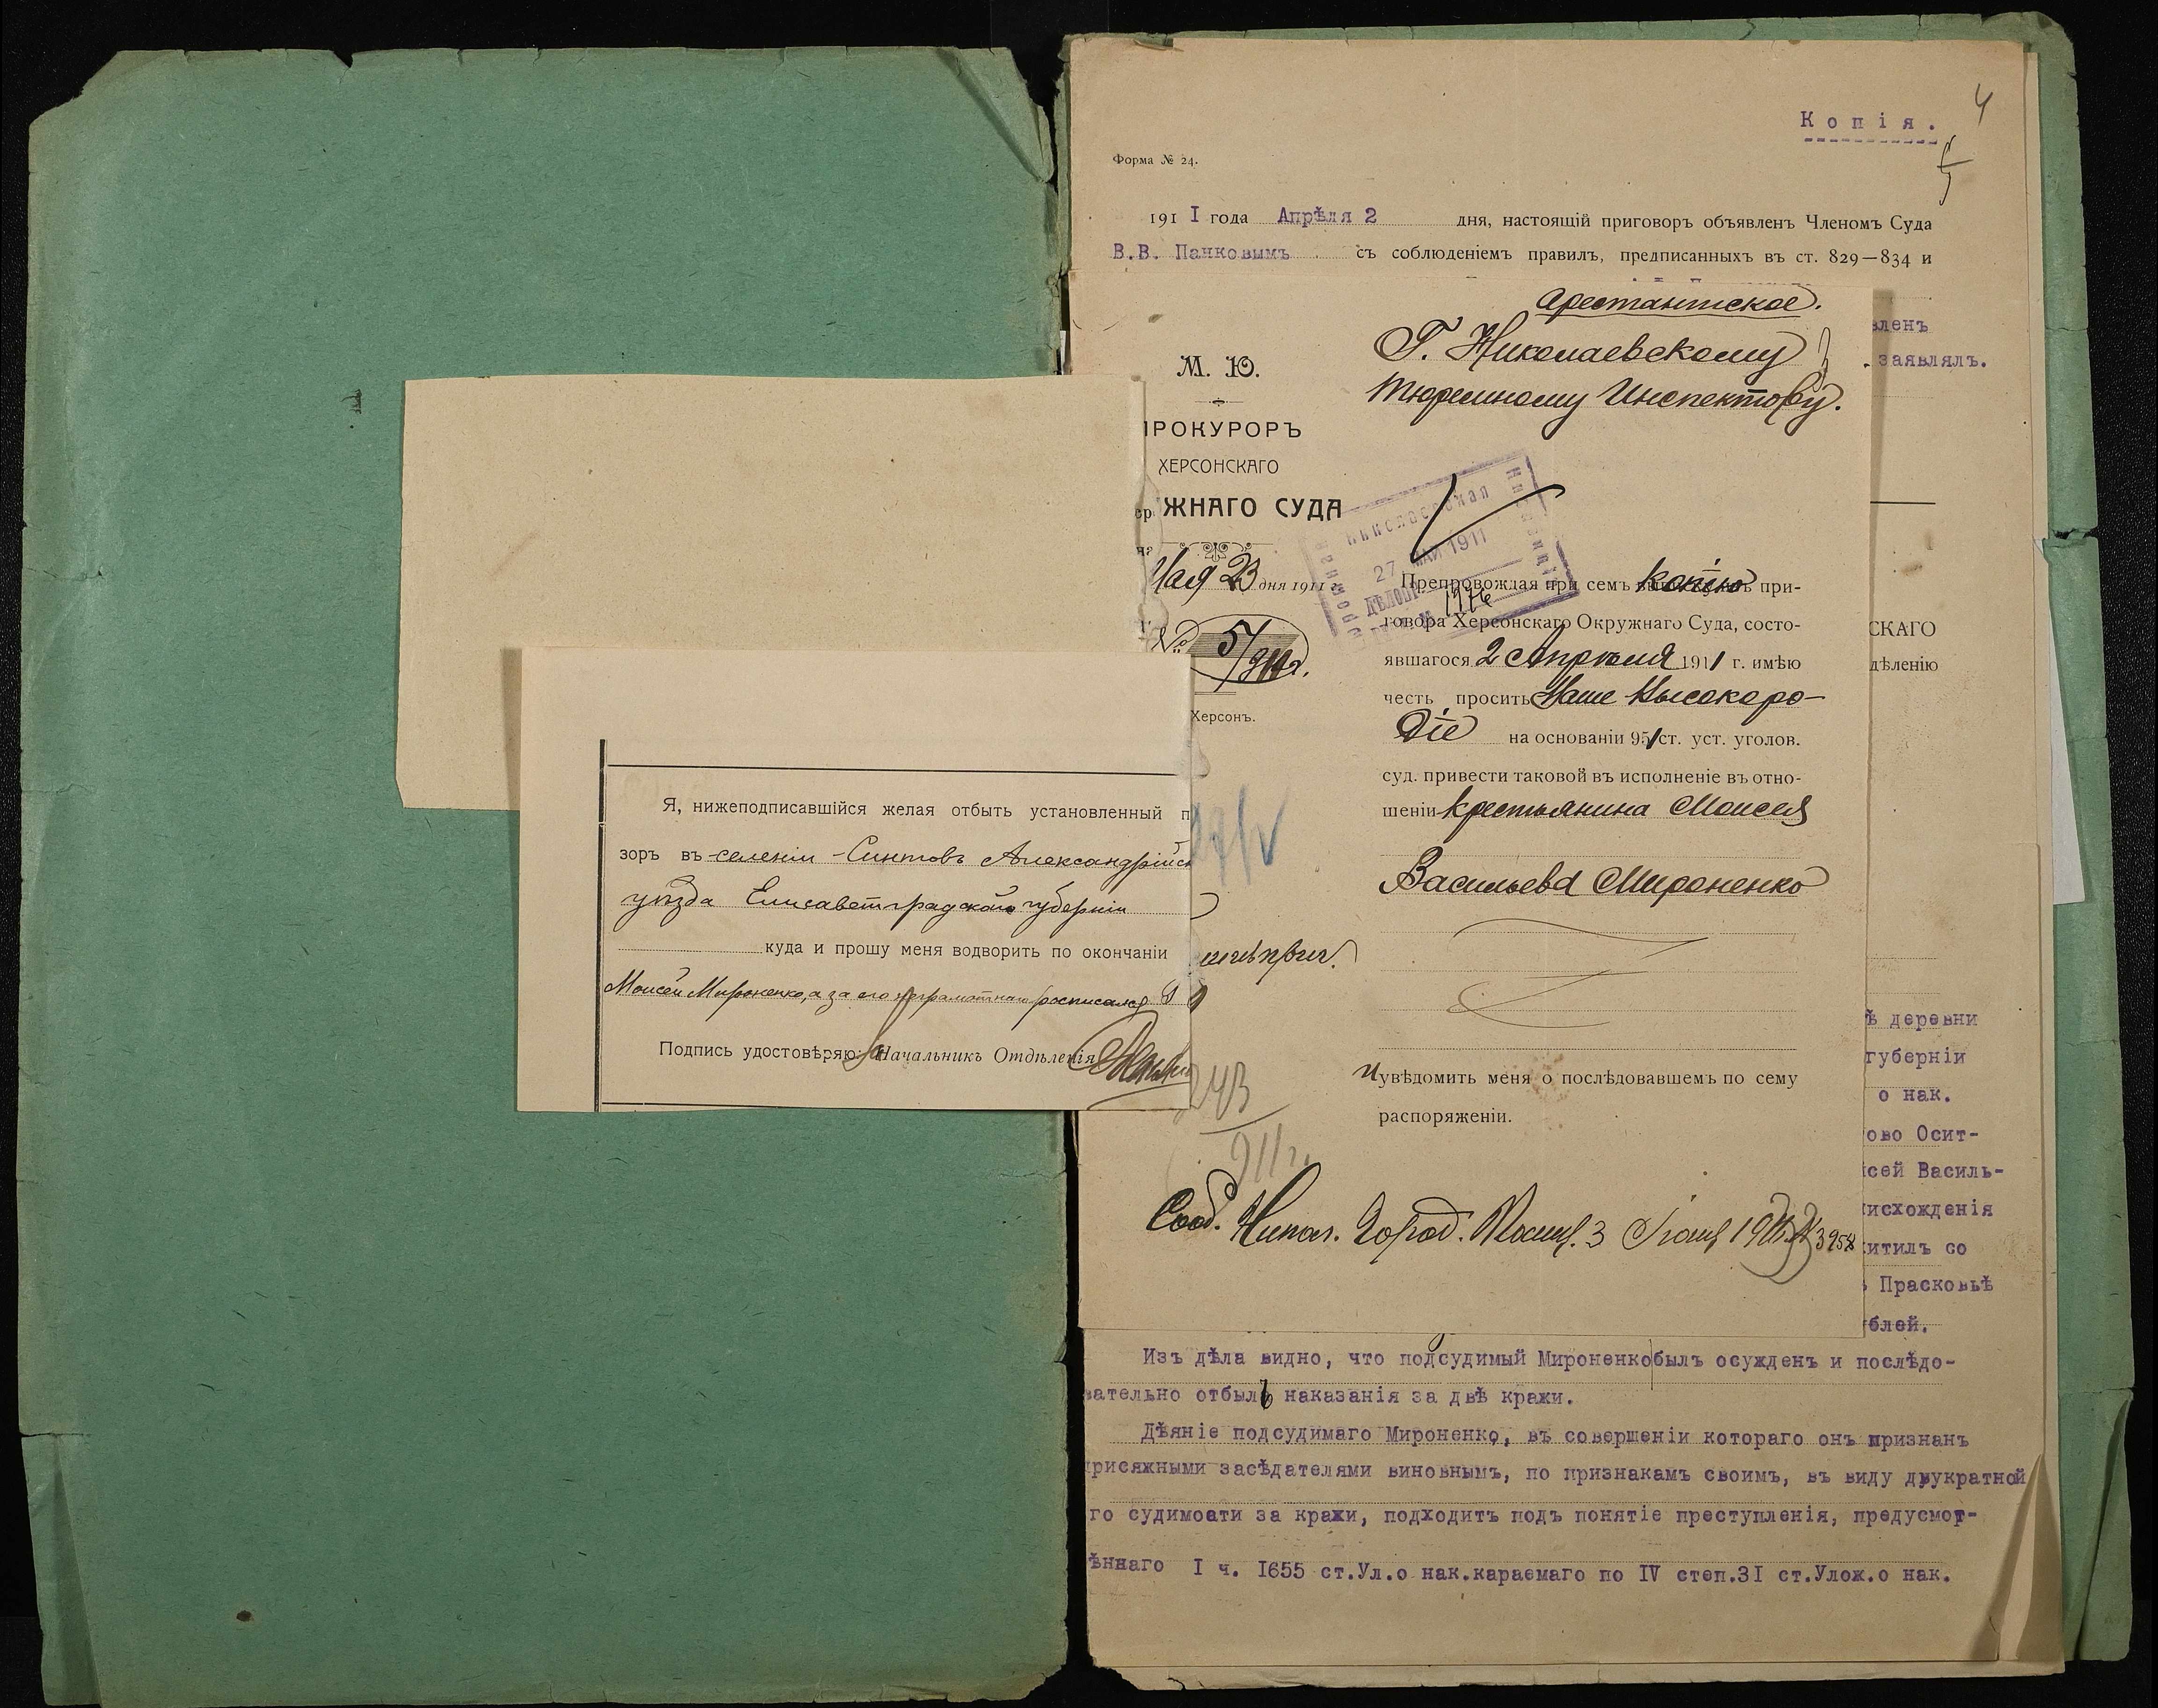 4
Копія.
5
Форма № 24.
191I года Апрѣля 2 дня, настоящій приговоръ объявленъ Членомъ Суда
В.В. Панковымъ съ соблюденіемъ правилъ, предписанныхъ въ ст. 829—834 и
вленъ
заявлялъ.
СКАГО
дѣленію
ѣ деревни
губерніи
о нак.
ово Осит-
сей Василь-
исхожденія
итилъ со
Прасковьѣ
блей.
Изъ дѣла видно, что подсудимый Мироненко былъ осужденъ и послѣдо-
вательно отбылъ наказанія за двѣ кражи.
Дѣяніе подсудимаго Мироненко, въ совершеніи котораго онъ признанъ
присяжными засѣдателями виновнымъ, по признакамъ своимъ, въ виду двукратной
го судимоати за кражи, подходитъ подъ понятіе преступленія, предусмот-
ѣннаго I ч. I655 ст.Ул.о нак.караемаго по IV степ.3I ст.Улож.о нак.
М. Ю.
ПРОКУРОРЪ
ХЕРСОНСКАГО
ЖНАГО СУДА
Мая 23 дня 1911
№ 5/911г.
Херсонъ.
Арестантское.
Г. Николаевскому
Тюремному Инспектору.
27 МАЙ 1911
1976
Препровождая при семъ копію при-
говора Херсонскаго Окружнаго Суда, состо-
явшагося 2 Апрѣля 1911 г. имѣю
честь просить Ваше Высокоро-
діе на основаніи 951 ст. уст. уголов.
суд. привести таковой въ исполненіе въ отно-
шеніи крестьянина Моисея
Васильева Мироненко
и увѣдомить меня о послѣдовавшемъ по сему
распоряженіи.
243
911г.
Сооб. Никол. Город. Полиц. 3 Іюня 1911 № 3958
Я, нижеподписавшійся желая отбыть установленный п
зоръ въ селеніи Синтовъ Александрійск
уѣзда Елисаветградской губерніи
куда и прошу меня водворить по окончаніи
Моисей Мироненко, а за его неграмотнаго росписался
Подпись удостовѣряю: За Начальникъ Отдѣленія